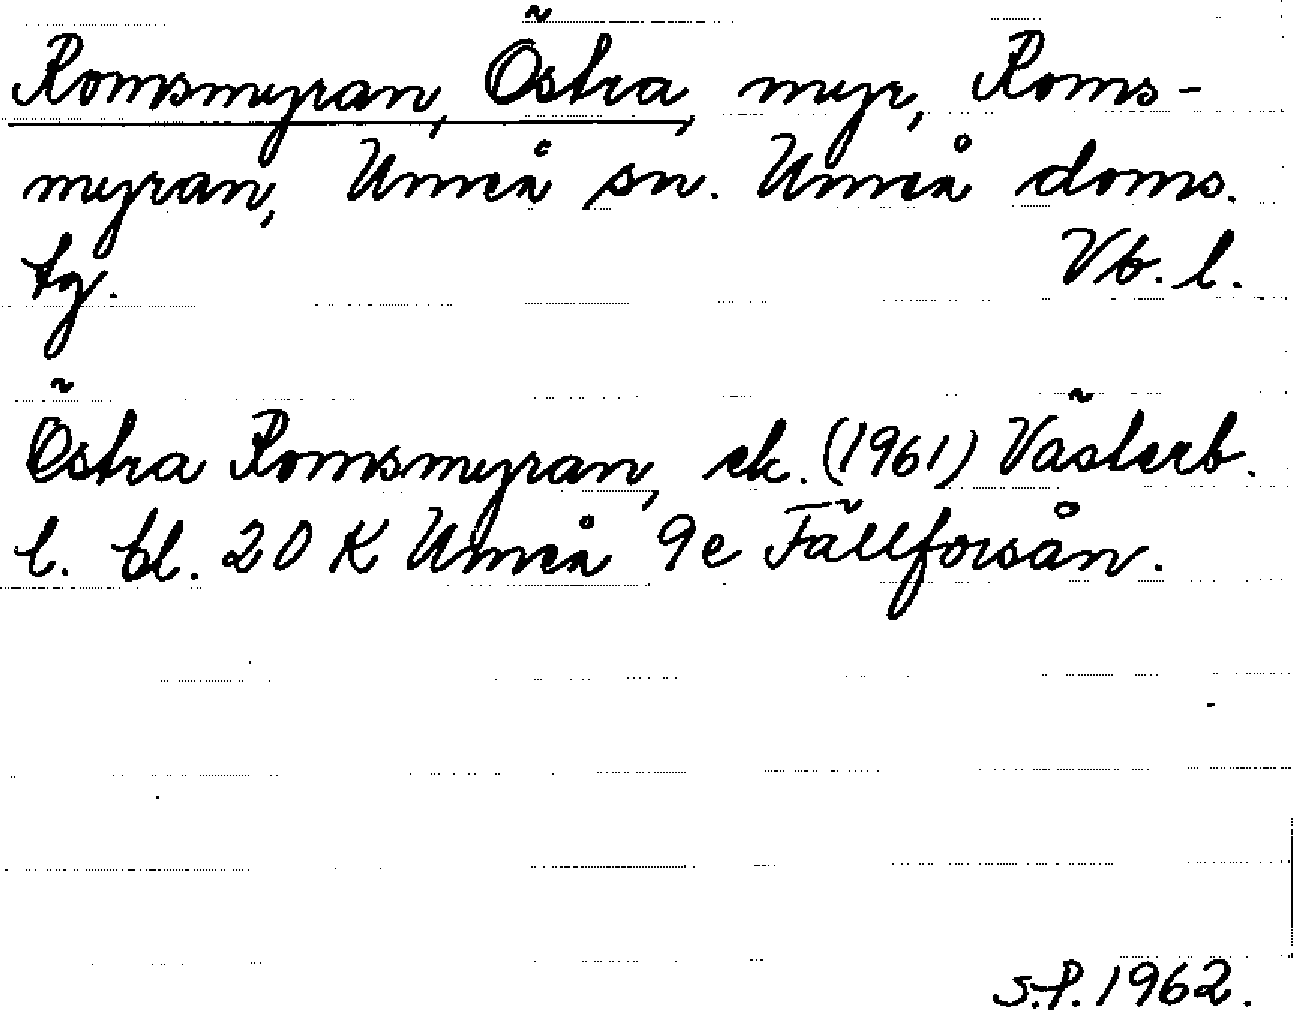 Romsmyran, Östra, myr, Roms-
myran, Umeå sn. Umeå doms.
tg. Vb. l.
Östra Romsmyran, ek. (1961) Västerb.
l. bl. 20 K Umeå 9e Fällforsån.
S.P. 1962.